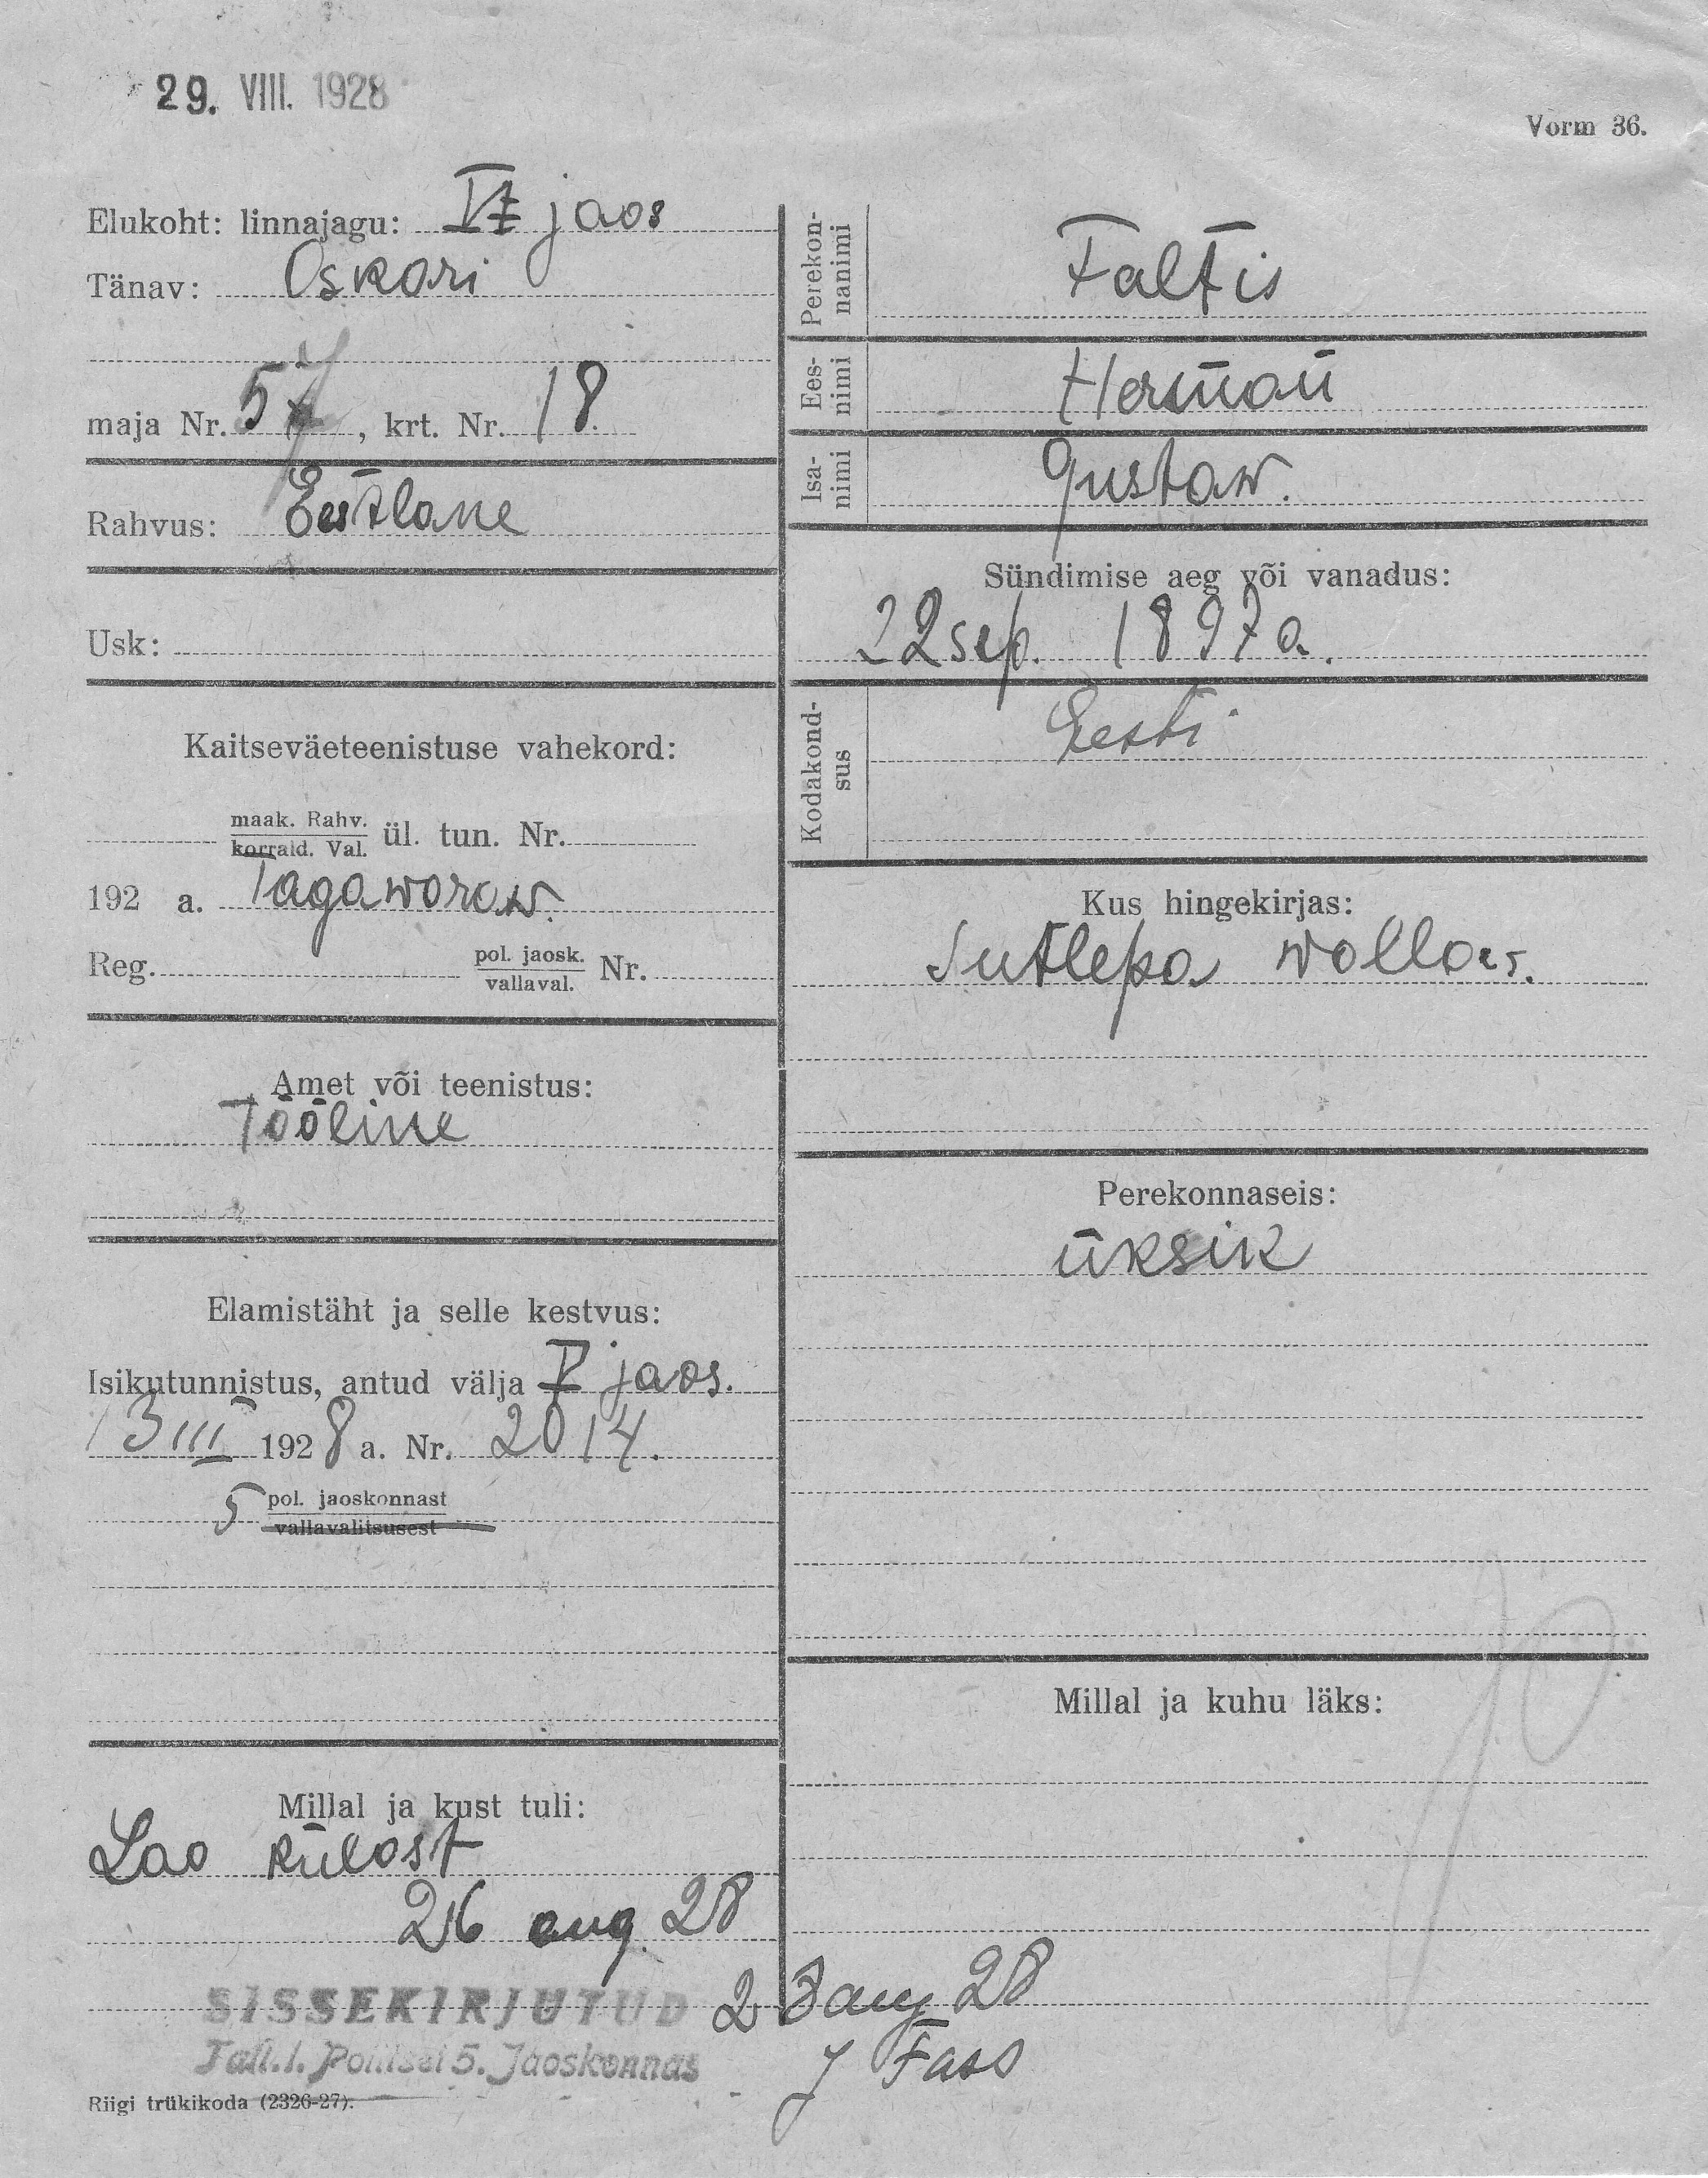 29. VIII. 1928
Vorm 36.
Elukoht: linnajagu: jaos
Tänav: Oskari
maja Nr. 57, krt. Nr. 18.
Rahvus: Eestlane
Usk:
Kaitseväeteenistuse vahekord:
maak. Rahv.
korrald. Val. ül. tun. Nr.
192 a. Tagawaraw.
Reg. pol. jaosk.
vallaval. Nr.
Amet või teenistus:
Tööline
Elamistäht ja selle kestvus:
Isikutunnistus, antud välja V jaos.
13 III 1928 a. Nr. 2014.
5 pol. jaoskonnast
vallavalitsusest
Millal ja kust tuli:
Lao külast
26 aug. 28
SISSEKIRJUTUD
Tall.l. Politsei 5. Jaoskonnas
Riigi trükikoda (2326-27).
Perekon-
nanimi
Faltis
Ees-
nimi
Herman
Isa-
nimi
Gustaw.
Sündimise aeg või vanadus:
22 sep. 1897 a.
Kodakond-
sus
Eesti
Kus hingekirjas:
Sutlepa wallas.
Perekonnaseis:
üksik
Millal ja kuhu läks:
28 aug 28
J Fass